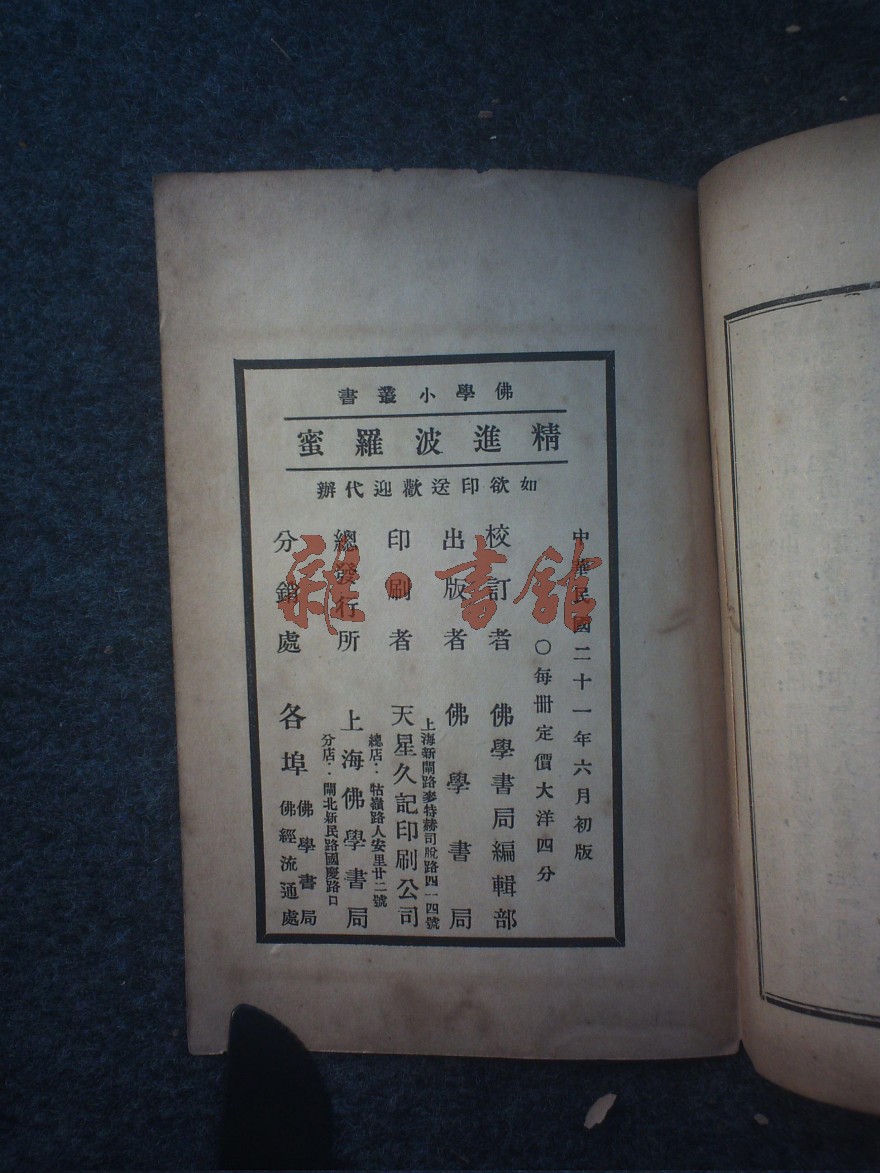 佛學小叢書
精進波羅蜜
如欲印送歡迎代辦
中華民國二十一年六月初版
○每冊定價大洋四分
校訂者 佛學書局編輯部
出版者 佛學書局
上海新閘路麥特赫司脫路四一四號
印刷者 天星久記印刷公司
總店：牯嶺路人安里廿二號
總發行所 上海佛學書局
分店：閘北新民路國慶路口
分銷處 各埠
佛學書局
佛經流通處
雜·書館